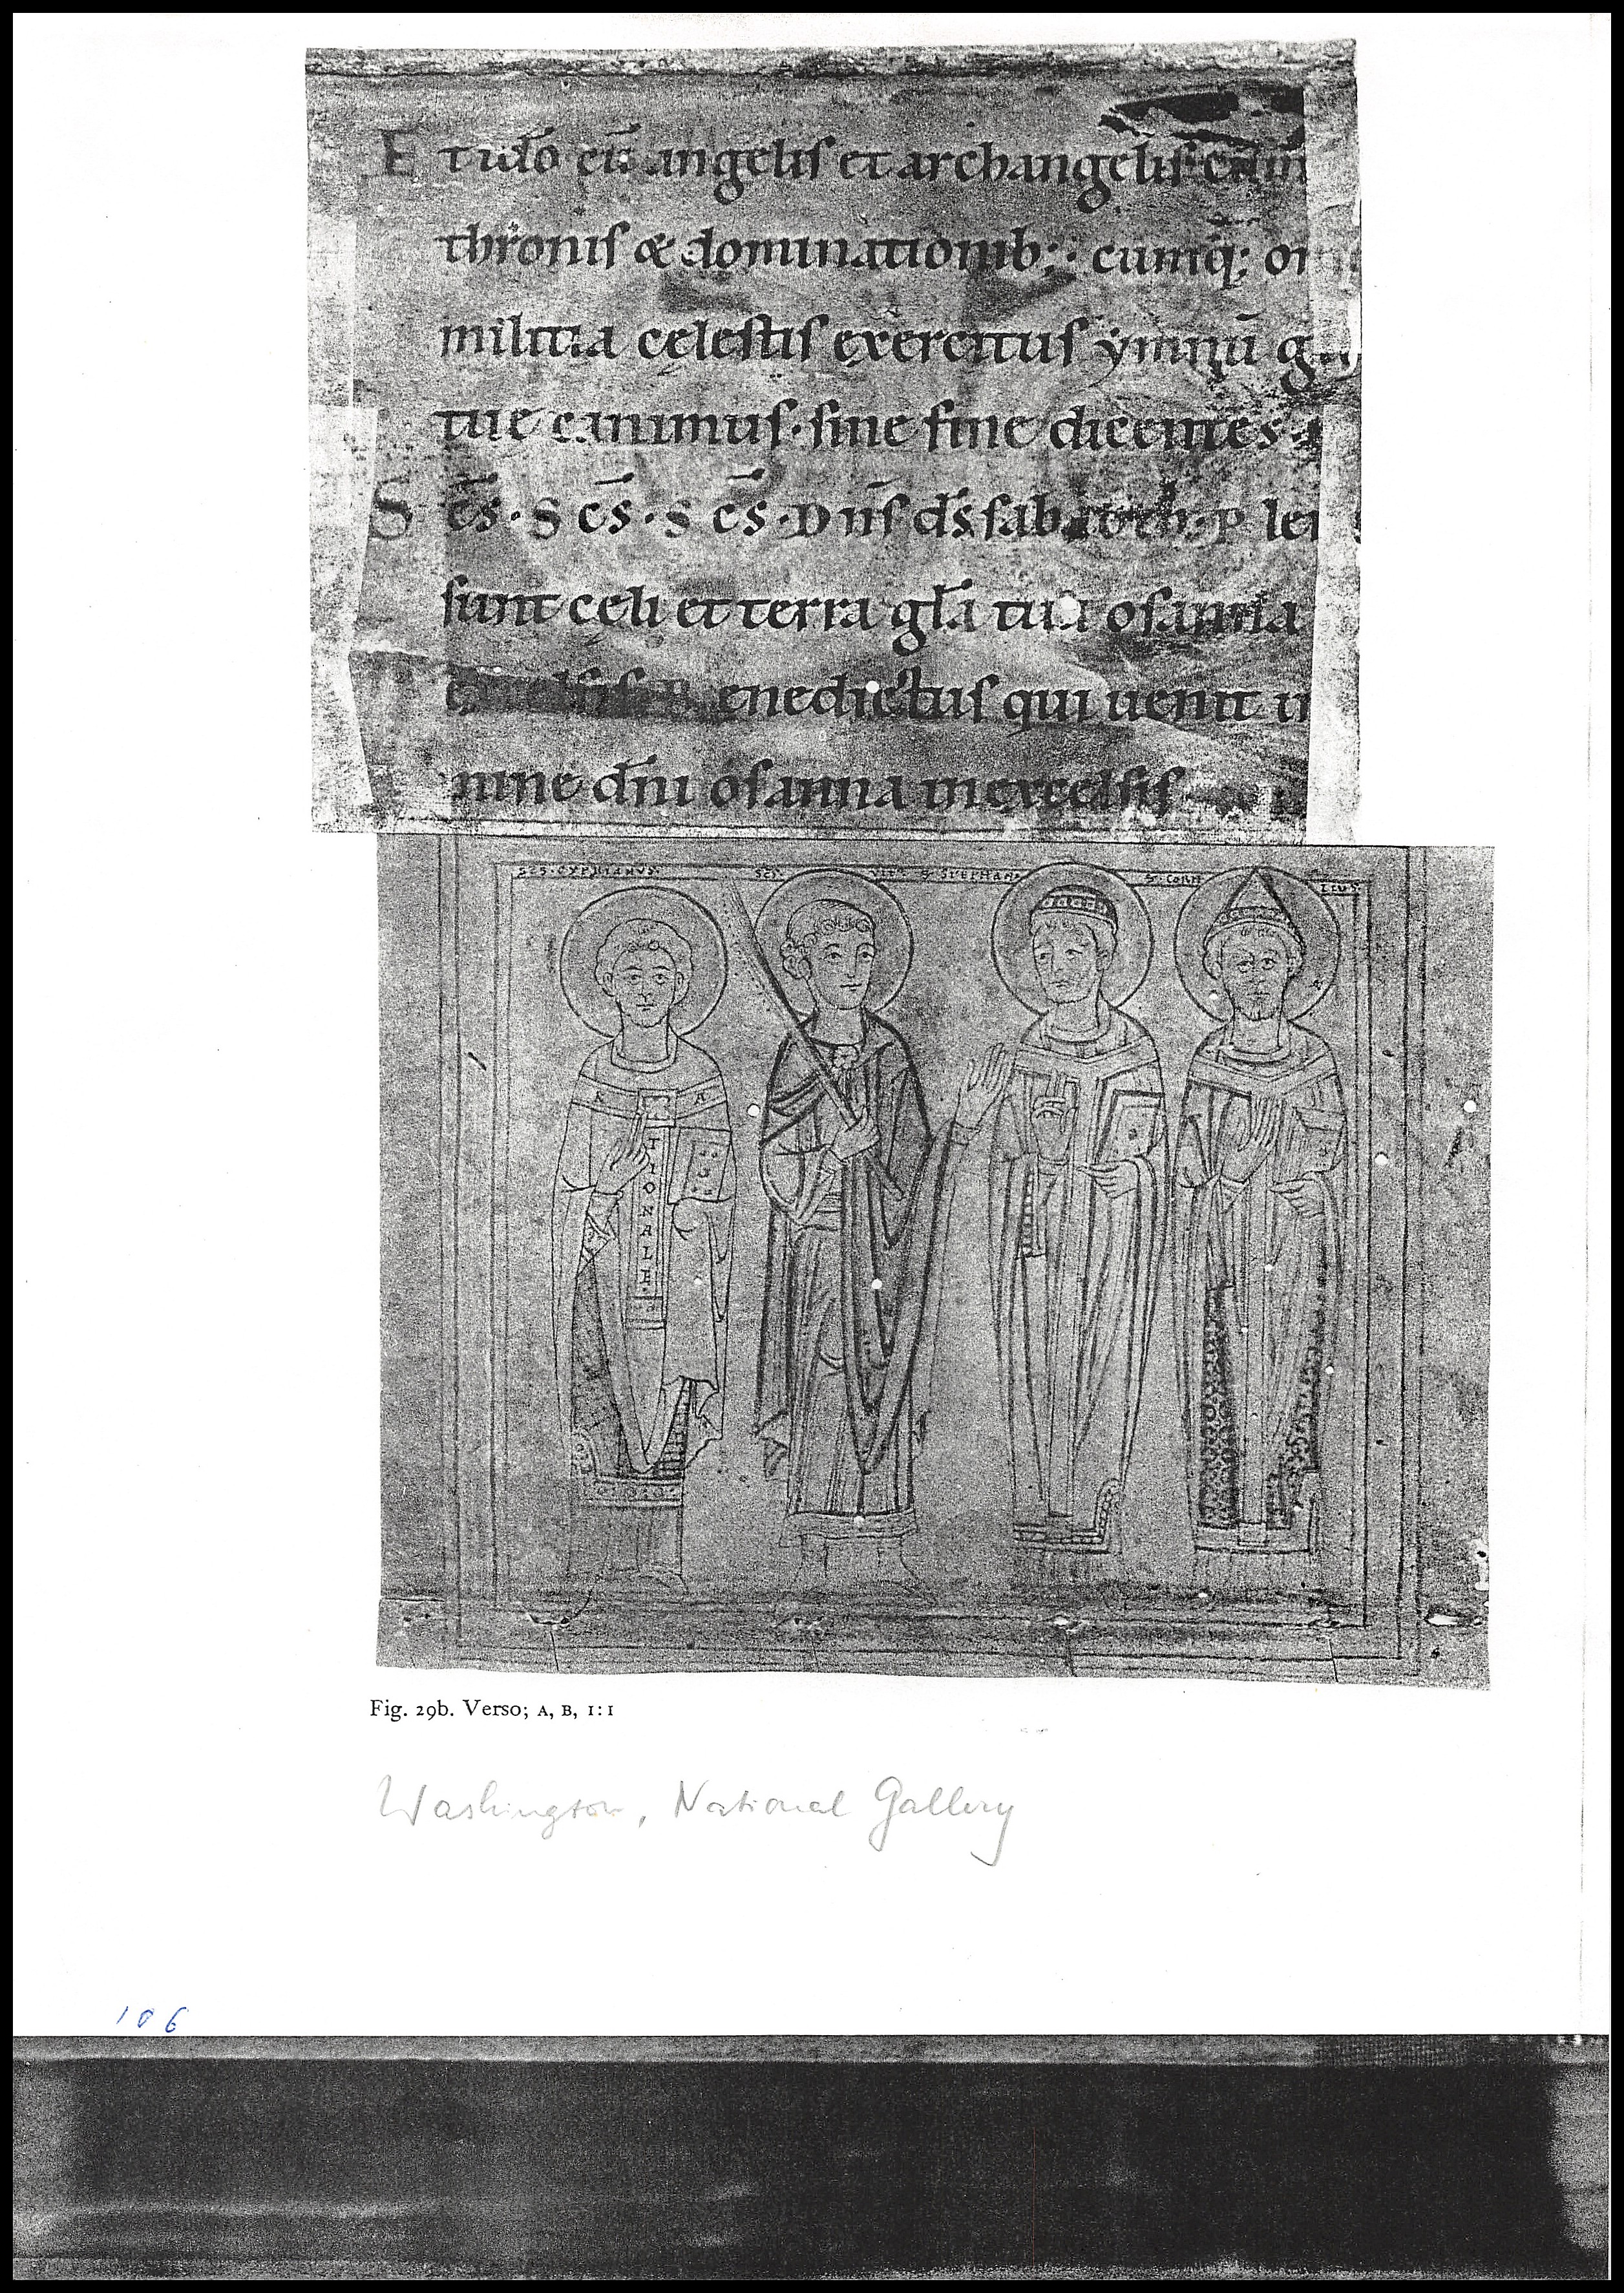 E t iďo cū angelis et archangelis cum
thronis & dominationib; cumq; om
militia cęlestis exercitus ymnū g
tue canimus · sine fine dicentes ·
S c̄s · S c̄s · S c̄s · D n̄s d̄s sabaoth · P len
sunt cęli et terra gl̄a tua osanna
excelsis B enedictus qui uenit in
mine dn̄i osanna inexcelsis
SCS · CYPRIANVS · SCS · VIT S STEPHAN S · CORN LIVS
A A
TIONALE
Fig. 29b. Verso; A, B, 1:1
Washington, National Gallery
106